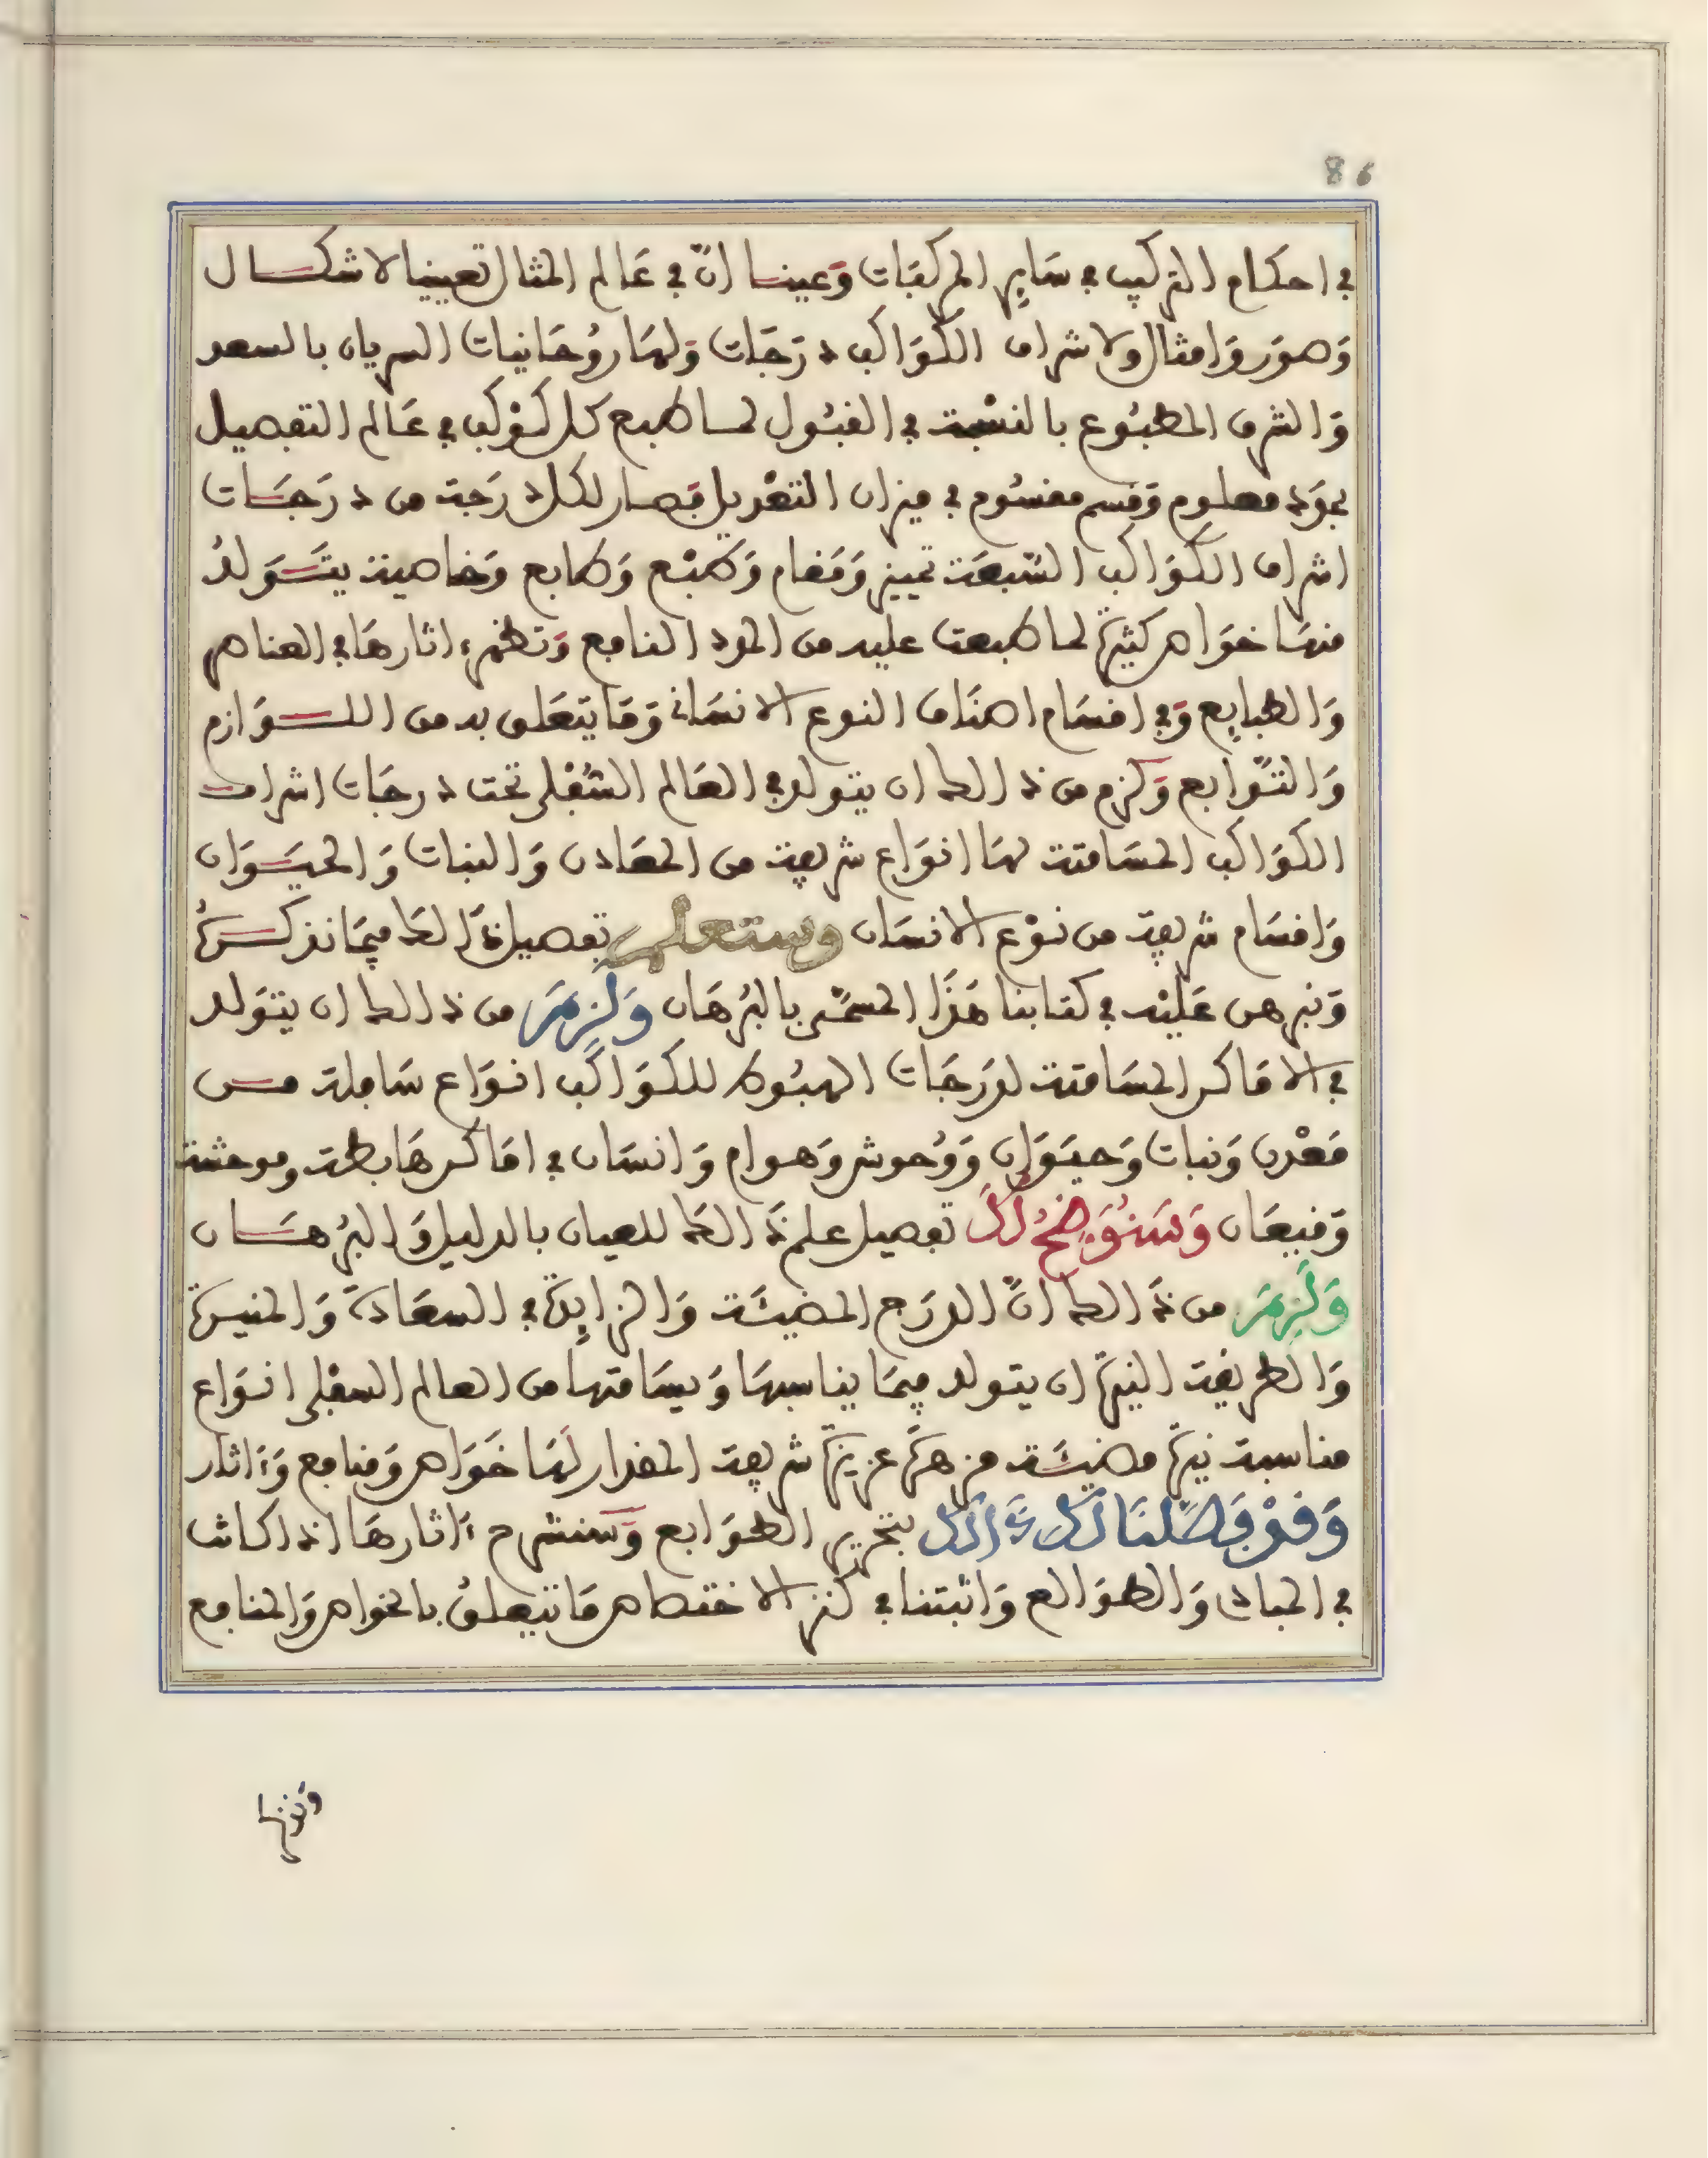 86
في احكام التركيب في سَايِر المركبَات وَعينا انّ في عَالم المثال تعيينا لاشكال
وَصوَر وَامثال ولاشراف الكوَاكب درَجَات وَلهَا رُوحَانيات السريان بالسعد
وَالشرف المطبُوع بالنسْبة في القبُول لما طبع كل كوْكب في عَالم التفصيل
معلوم وَقسم مقسُوم في ميزان التعْديل فصار لكل درَجة من درَجَات
اشراف الكوَاكب السّبعَة تمييز وَمَقام وَطبْع وَطابع وَخاصية يتَوَلدُ
منهَا خوَاص كثيرة لما طبعت عليه من الجود النافع وَتظهر ءاثارهَا في العناصر
وَالطبايِع وَفي اقسَام اصنَاف النوع الانسَاني وَمَا يتعَلق به من اللوَازم
وَالتّوَابع وَلزم من ذالك ان يتولد في العَالم السُّفْلي تحت درجَات اشراف
الكوَاكب المسَامتة لهَا انوَاع شريفة من المعَادن وَالنبات وَالحيَوَان
وَاقسَام شريفة من نوْع الانسَان وستعلم تفصيل ذَالك فيمَا نذكرُهُ
وَنبرهن عَليْه في كتابنا هَذَا المسَمّى بالبُرهَان وَلَزِمَ من ذالك ان يتوَلد
في الاماكن المسَامتة لدرَجَات الهبُوط للكوَاكب انوَاع سَافلة من
مَعْدن وَنبات وَحيَوَان وَوُحوش وَهوام وَانسَان في امَاكن هَابطة وموحشة
وَقيعَان وَسَنُوَضِحُ لَكَ تفصيل علم ذَالك للعيان بالدليل وَالبُرهَان
وَلَزِمَ من ذَالك انّ الدرَج المضيئَة وَالزايِدَة في السعَادَة وَالمنيرة
وَالطريقة النيرة ان يتولد فيمَا يناسبهَا وَيسَامتها من العالم السفْلي انوَاع
مناسبة نيرة مضيئَة مزهرَة عزيزة شريفة المقدار لَهَا خَوَاص وَمنافع وَءَاثار
وَقدْ فَصَّلنَا لَكَ ذَالكَ بتحرير الطوَابع وَسَنشرح ءَاثارهَا اذا كانت
في المبادي وَالطوَالع وَاثبتنا في كنز الاختصاص مَا يتعلقُ بالخواص وَالمنافع